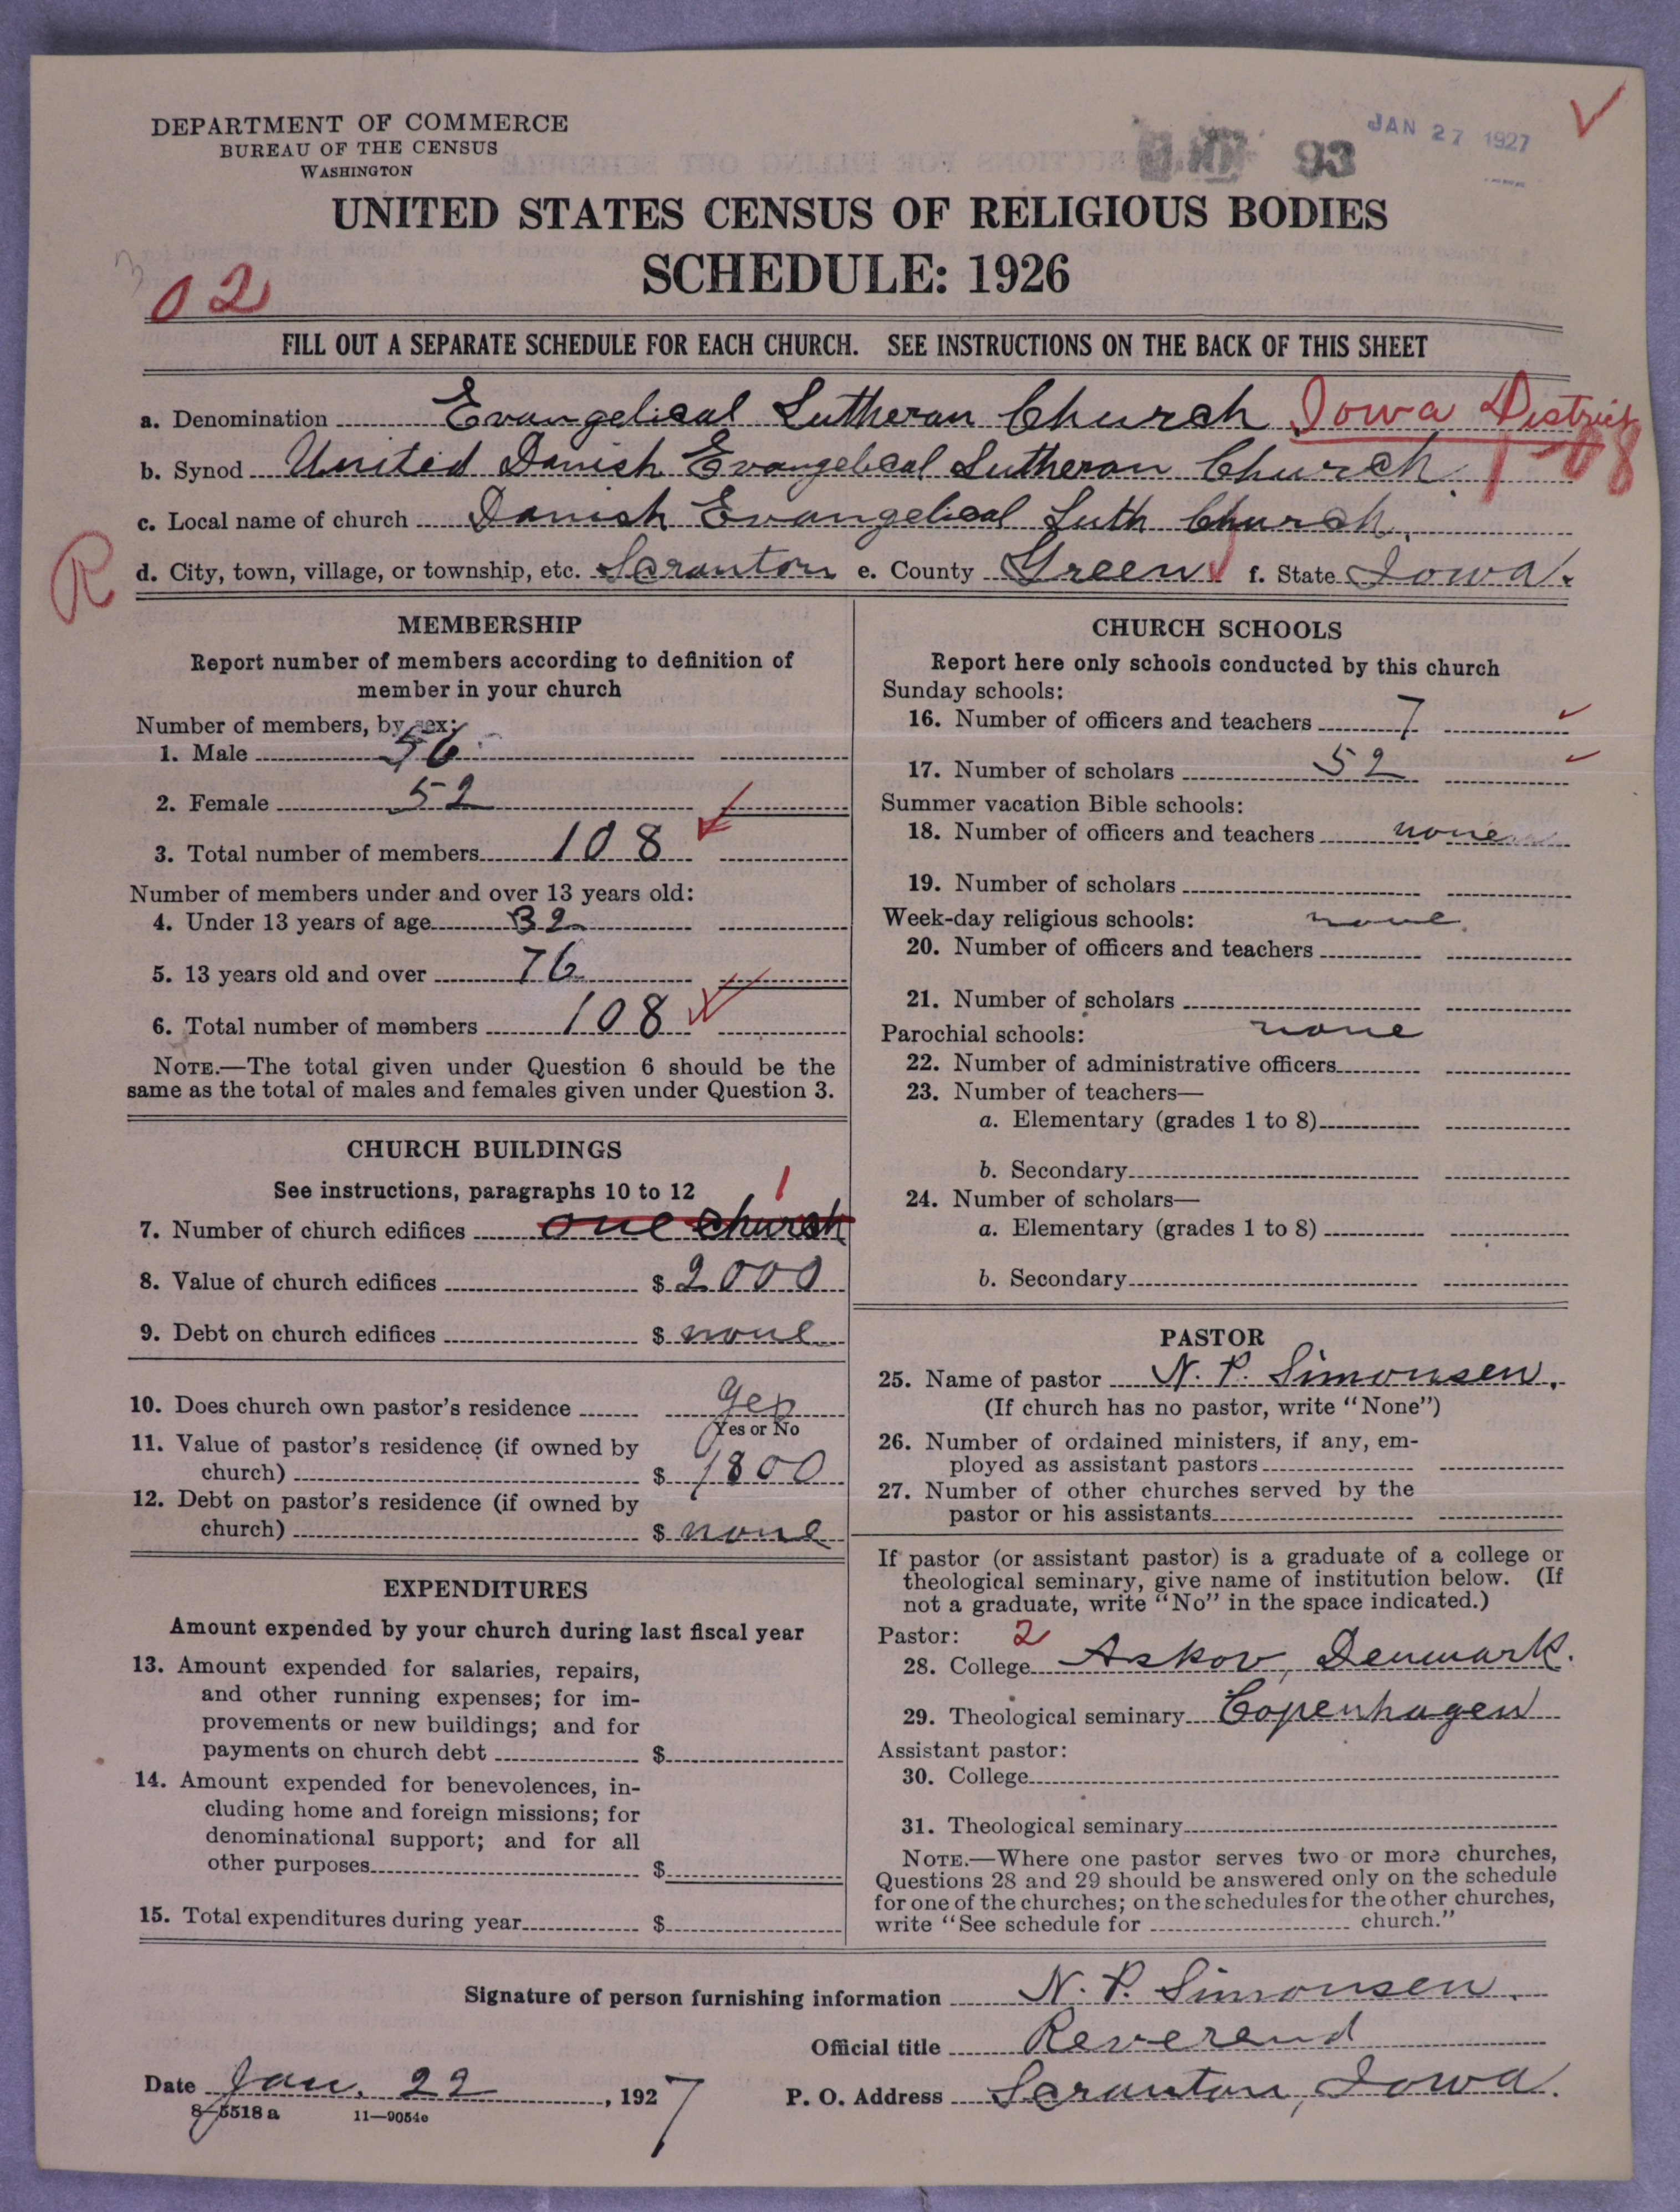 DEPARTMENT OF COMMERCE
BUREAU OF THE CENSUS
WASHINGTON
93
JAN 27 1927
UNITED STATES CENSUS OF RELIGIOUS BODIES
SCHEDULE: 1926
02
FILL OUT A SEPARATE SCHEDULE FOR EACH CHURCH. SEE INSTRUCTIONS ON THE BACK OF THIS SHEET
a. Denomination Evangelical Lutheran Church Iowa District
b. Synod United Danish Evangelical Lutheran Church. 1-08
c. Local name of church Danish Evangelical Luth Church.
R
d. City, town, village, or township, etc. Scranton e. County Green f. State Iowa.
MEMBERSHIP
Report number of members according to definition of
member in your church
Number of members, by sex:
1. Male 56
2. Female 52
3. Total number of members 108
Number of members under and over 13 years old:
4. Under 13 years of age 32
5. 13 years old and over 76
6. Total number of members 108
NOTE.—The total given under Question 6 should be the
same as the total of males and females given under Question 3.
CHURCH BUILDINGS
See instructions, paragraphs 10 to 12
1
7. Number of church edifices one church
8. Value of church edifices $ 2000
9. Debt on church edifices $ none
10. Does church own pastor's residence yes
Yes or No
11. Value of pastor's residence (if owned by
church) $ 1800
12. Debt on pastor's residence (if owned by
church) $ none
EXPENDITURES
Amount expended by your church during last fiscal year
13. Amount expended for salaries, repairs,
and other running expenses; for im-
provements or new buildings; and for
payments on church debt $
14. Amount expended for benevolences, in-
cluding home and foreign missions; for
denominational support; and for all
other purposes $
15. Total expenditures during year $
CHURCH SCHOOLS
Report here only schools conducted by this church
Sunday schools:
16. Number of officers and teachers 7
17. Number of scholars 52
Summer vacation Bible schools:
18. Number of officers and teachers none
19. Number of scholars
Week-day religious schools: none.
20. Number of officers and teachers
21. Number of scholars
Parochial schools: none
22. Number of administrative officers
23. Number of teachers—
a. Elementary (grades 1 to 8)
b. Secondary
24. Number of scholars—
a. Elementary (grades 1 to 8)
b. Secondary
PASTOR
25. Name of pastor N. P. Simonsen.
(If church has no pastor, write "None")
26. Number of ordained ministers, if any, em-
ployed as assistant pastors
27. Number of other churches served by the
pastor or his assistants
If pastor (or assistant pastor) is a graduate of a college or
theological seminary, give name of institution below. (If
not a graduate, write "No" in the space indicated.)
Pastor: 2
28. College Askov, Denmark.
29. Theological seminary Copenhagen
Assistant pastor:
30. College
31. Theological seminary
NOTE.—Where one pastor serves two or more churches,
Questions 28 and 29 should be answered only on the schedule
for one of the churches; on the schedules for the other churches,
write "See schedule for church."
Signature of person furnishing information N. P. Simonsen.
Official title Reverend
Date Jan. 22, 1927 P. O. Address Scranton, Iowa.
8-5518 a 11—9054e